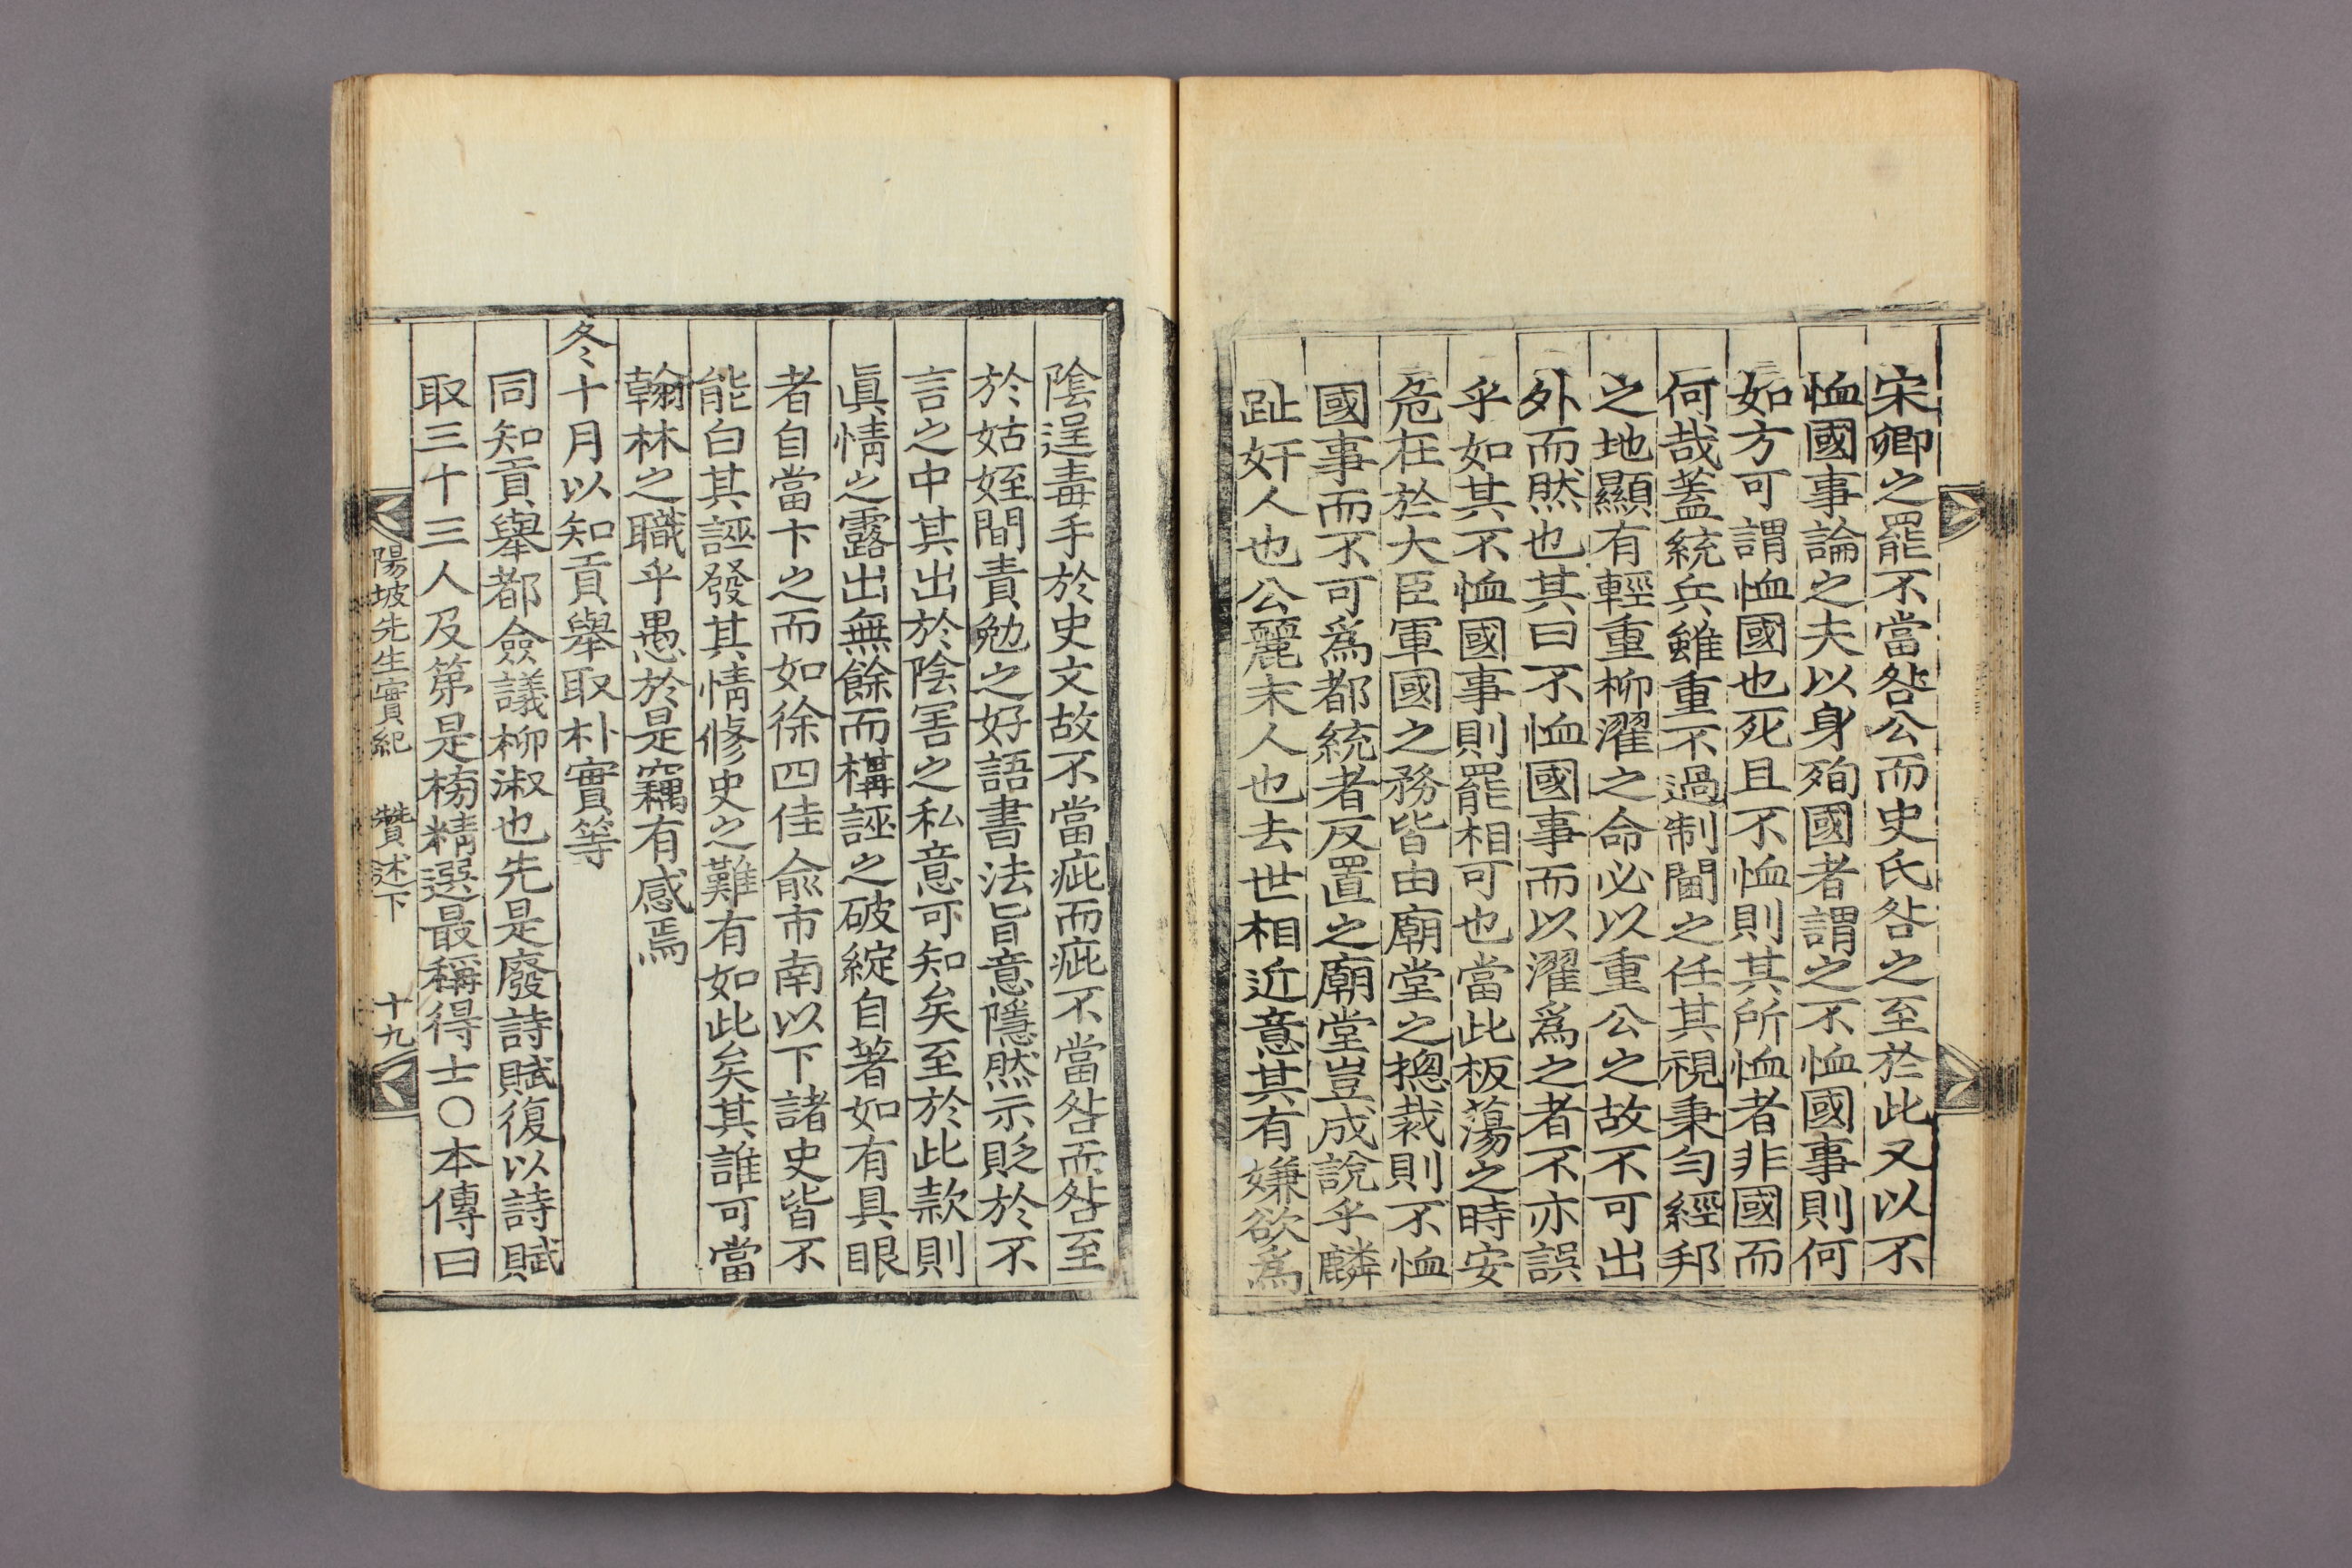 宋卿之罷不當咎公而史氏咎之至於此又以不
恤國事論之夫以身殉國者謂之不恤國事則何
如方可謂恤國也死且不恤則其所恤者非國而
何哉蓋統兵雖重不過制閫之任其視秉勻經邦
之地顯有輕重柳濯之命必以重公之故不可出
外而然也其曰不恤國事而以濯爲之者不亦誤
乎如其不恤國事則罷相可也當此板蕩之時安
危在於大臣軍國之務皆由廟堂之摠裁則不恤
國事而不可爲都統者反置之廟堂豈成說乎麟
趾奸人也公麗末人也去世相近意其有嫌欲爲
陰逞毒手於史文故不當疵而疵不當咎而咎至
於姑姪間責勉之好語書法旨意隱然示貶於不
言之中其出於陰害之私意可知矣至於此款則
眞情之露出無餘而構誣之破綻自著如有具眼
者自當卞之而如徐四佳兪市南以下諸史皆不
能白其誣發其情修史之難有如此矣其誰可當
翰林之職乎愚於是竊有感焉
冬十月以知貢舉取朴實等
同知貢舉都僉議柳淑也先是廢詩賦復以詩賦
取三十三人及第是榜精選最稱得士○本傳曰
陽坡先生實紀 贊述下 十九